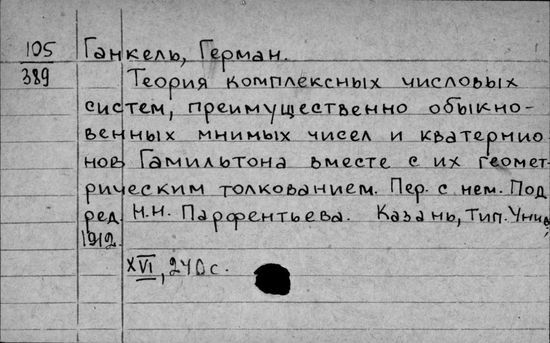 105 Ганкель, Герман.
389 Теория комплексных числовых
систем, преимущественно обыкно-
венных мнимых чисел и кватернио
нов Гамильтона вместе с их геомет-
рическим толкованием. Пер. с нем. Под
ред. Н.Н. Парфентьева. Казань, Тип. Унив,
1912.
XVI, 240 с.